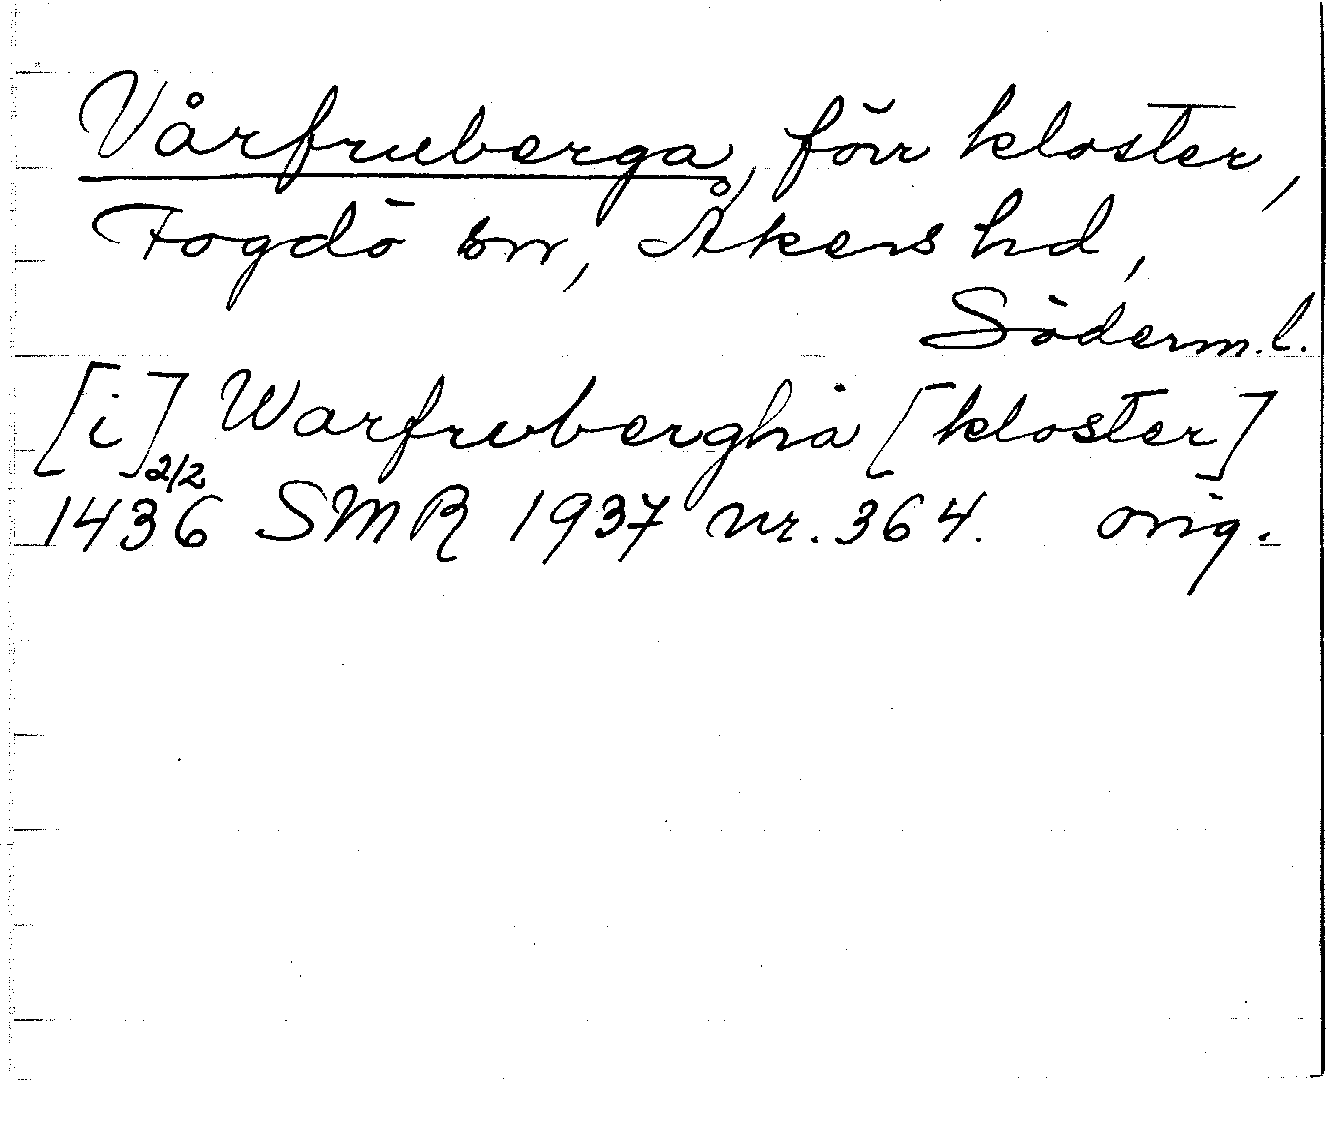 Vårfruberga, förr kloster,
Fogdö sn, Åkers hd,
Söderm.l.
[i] Warfrvberghä [kloster]
2/2
1436 SMR 1937 nr. 364. orig.